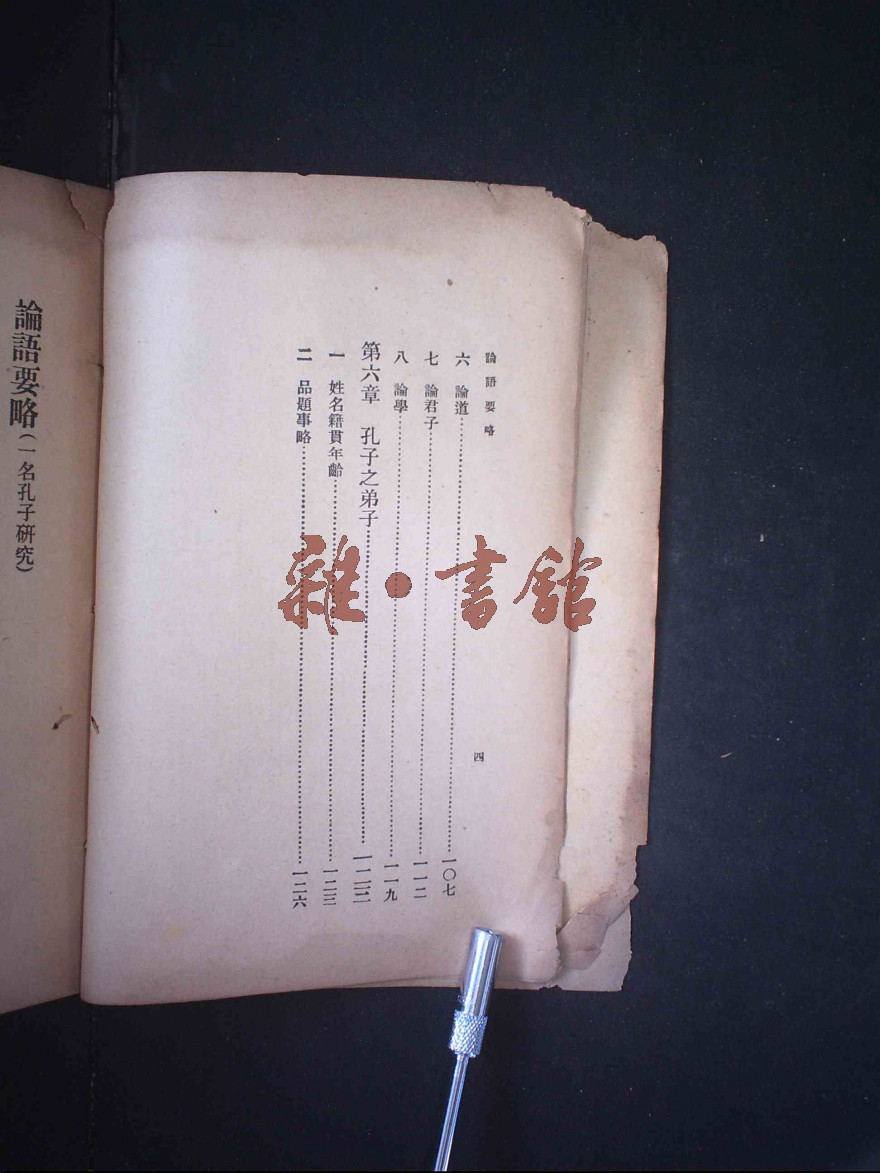 論語要略
四
六　論道………一〇七
七　論君子………一一二
八　論學………一一九
第六章　孔子之弟子………一二三
一　姓名籍貫年齡………一二三
二　品題事略………一二六
論語要略（一名孔子研究）
雜·書館